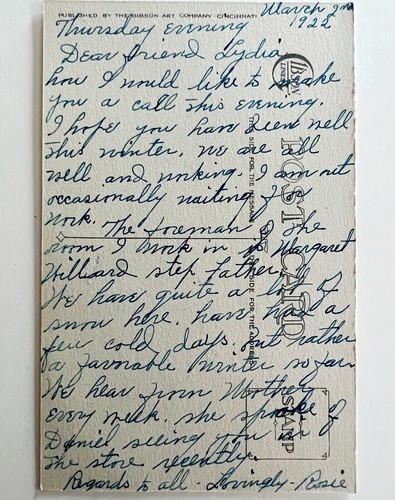 PUBLISHED BY THE GIBSON ART COMPANY CINCINNATI
March 2nd
1922
Thursday evening
Dear friend Lydia
how I would like to make
you a call this evening.
I hope you have been well
this winter. We are all
well and working. I am out
occasionally waiting for
work. The foreman of the
room I work in is Margaret
Williard step father.
We have quite a lot of
snow here. have had a
few cold days. but rather
a favorable winter so far
We hear from Mother
every week. she spoke of
Daniel seeing you in
the store recently.
Regards to all - Lovingly - Rosie
GIBSON
LINES
POST CARD
THIS SIDE FOR THE MESSAGE
SIDE FOR THE ADDRESS
STAMP